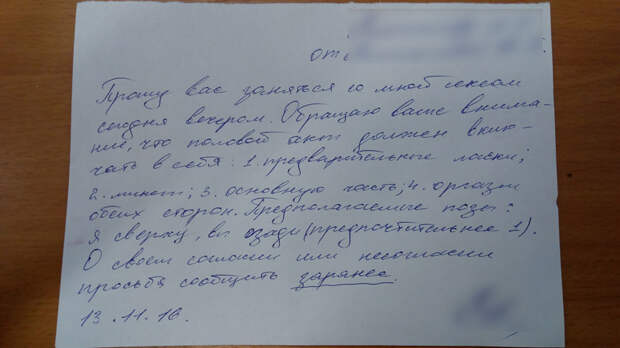 от
Прошу вас заняться со мной сексом
сегодня вечером. Обращаю ваше внима-
ние, что половой акт должен вклю-
чать в себя: 1. предварительные ласки;
2. минет; 3. основную часть; 4. оргазм
обеих сторон. Предполагаемые позы:
я сверху, вы сзади (предпочтительнее 1).
О своем согласии или несогласии
просьба сообщить заранее.
13.11.16.